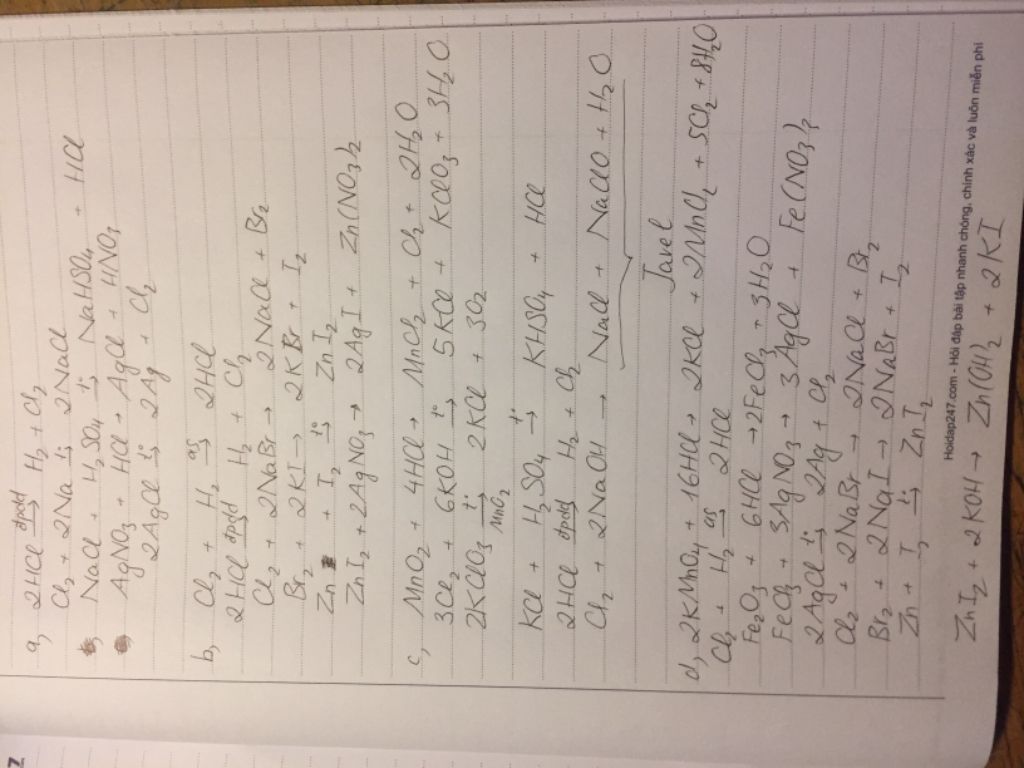 a, 2HCl đpdd→ H₂ + Cl₂
Cl₂ + 2Na t°→ 2NaCl
NaCl + H₂SO₄ t°→ NaHSO₄ + HCl
AgNO₃ + HCl → AgCl + HNO₃
2AgCl t°→ 2Ag + Cl₂
b, Cl₂ + H₂ as→ 2HCl
2HCl đpdd→ H₂ + Cl₂
Cl₂ + 2NaBr → 2NaCl + Br₂
Br₂ + 2KI → 2KBr + I₂
Zn + I₂ t°→ ZnI₂
ZnI₂ + 2AgNO₃ → 2AgI + Zn(NO₃)₂
c, MnO₂ + 4HCl → MnCl₂ + Cl₂ + 2H₂O
3Cl₂ + 6KOH t°→ 5KCl + KClO₃ + 3H₂O
2KClO₃ t°→ 2KCl + 3O₂
MnO₂
KCl + H₂SO₄ t°→ KHSO₄ + HCl
2HCl đpdd→ H₂ + Cl₂
Cl₂ + 2NaOH → NaCl + NaClO + H₂O
Javel
d, 2KMnO₄ + 16HCl → 2KCl + 2MnCl₂ + 5Cl₂ + 8H₂O
Cl₂ + H₂ as→ 2HCl
Fe₂O₃ + 6HCl → 2FeCl₃ + 3H₂O
FeCl₃ + 3AgNO₃ → 3AgCl + Fe(NO₃)₃
2AgCl t°→ 2Ag + Cl₂
Cl₂ + 2NaBr → 2NaCl + Br₂
Br₂ + 2NaI → 2NaBr + I₂
Zn + I₂ t°→ ZnI₂
Hoidap247.com - Hỏi đáp bài tập nhanh chóng, chính xác và luôn miễn phí
ZnI₂ + 2KOH → Zn(OH)₂ + 2KI